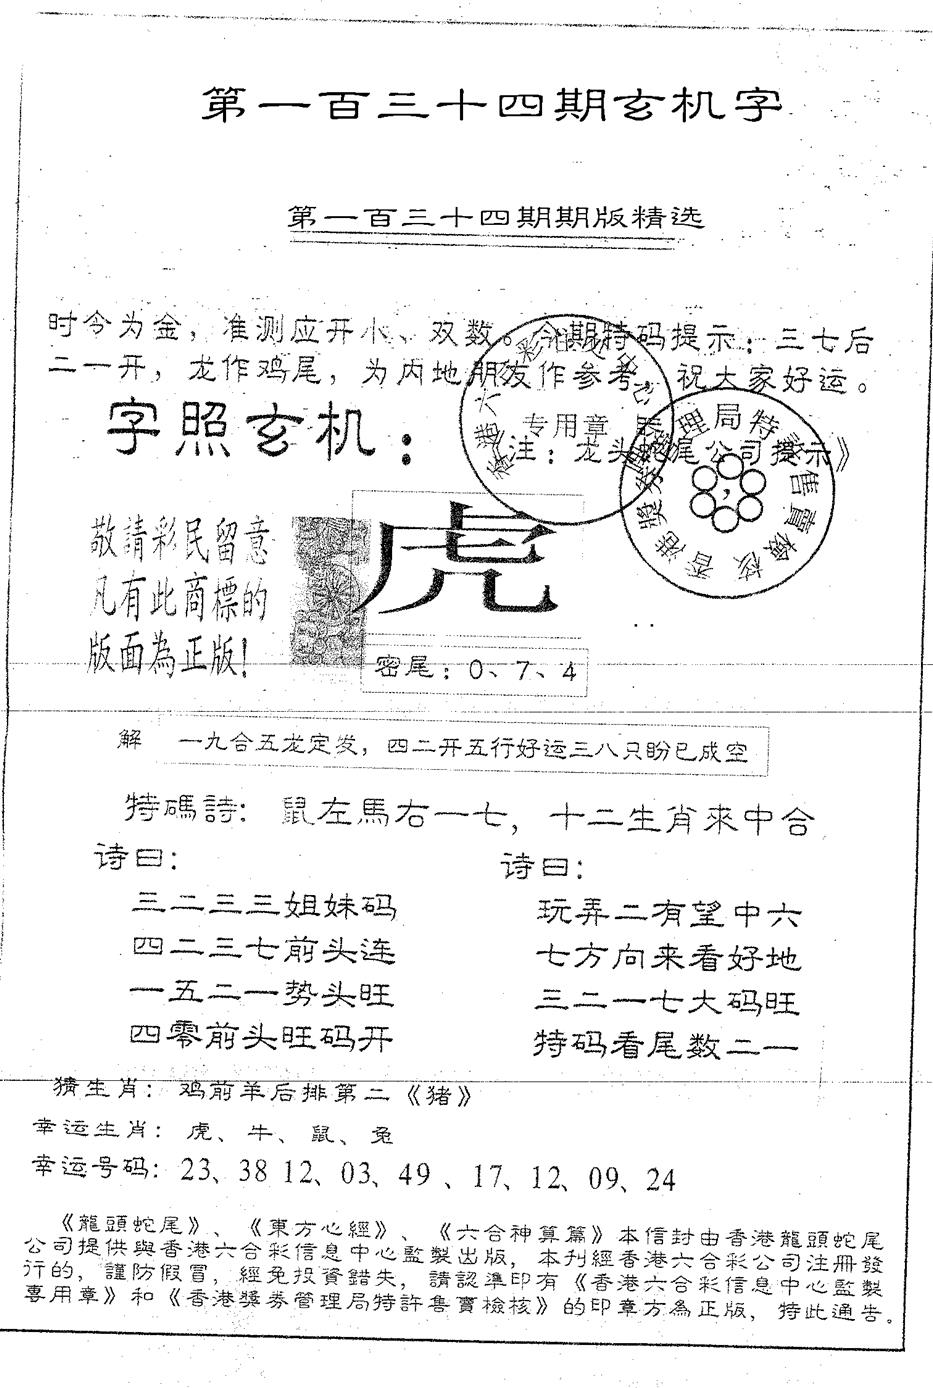 第一百三十四期玄机字
第一百三十四期期版精选
时今为金，准测应开小、双数。今期特码提示：三七后
二一开，龙作鸡尾，为内地朋友作参考，祝大家好运。
字照玄机：
注：龙头蛇尾公司提示》
专用章
香港獎券管理局特許售賣檢核
敬請彩民留意
凡有此商標的
版面為正版！
虎
密尾：0、7、4
解 一九合五龙定发，四二开五行好运三八只盼已成空
特碼詩：鼠左馬右一七，十二生肖來中合
诗曰：
三二三三姐妹码
四二三七前头连
一五二一势头旺
四零前头旺码开
诗曰：
玩弄二有望中六
七方向来看好地
三二一七大码旺
特码看尾数二一
猜生肖：鸡前羊后排第二《猪》
幸运生肖：虎、牛、鼠、兔
幸运号码：23、38 12、03、49 、17、12、09、24
《龍頭蛇尾》、《東方心經》、《六合神算篇》本信封由香港龍頭蛇尾
公司提供與香港六合彩信息中心監製出版，本刊經香港六合彩公司注冊發
行的，謹防假冒，經免投資錯失，請認準印有《香港六合彩信息中心監製
專用章》和《香港獎券管理局特許售賣檢核》的印章方為正版，特此通告。